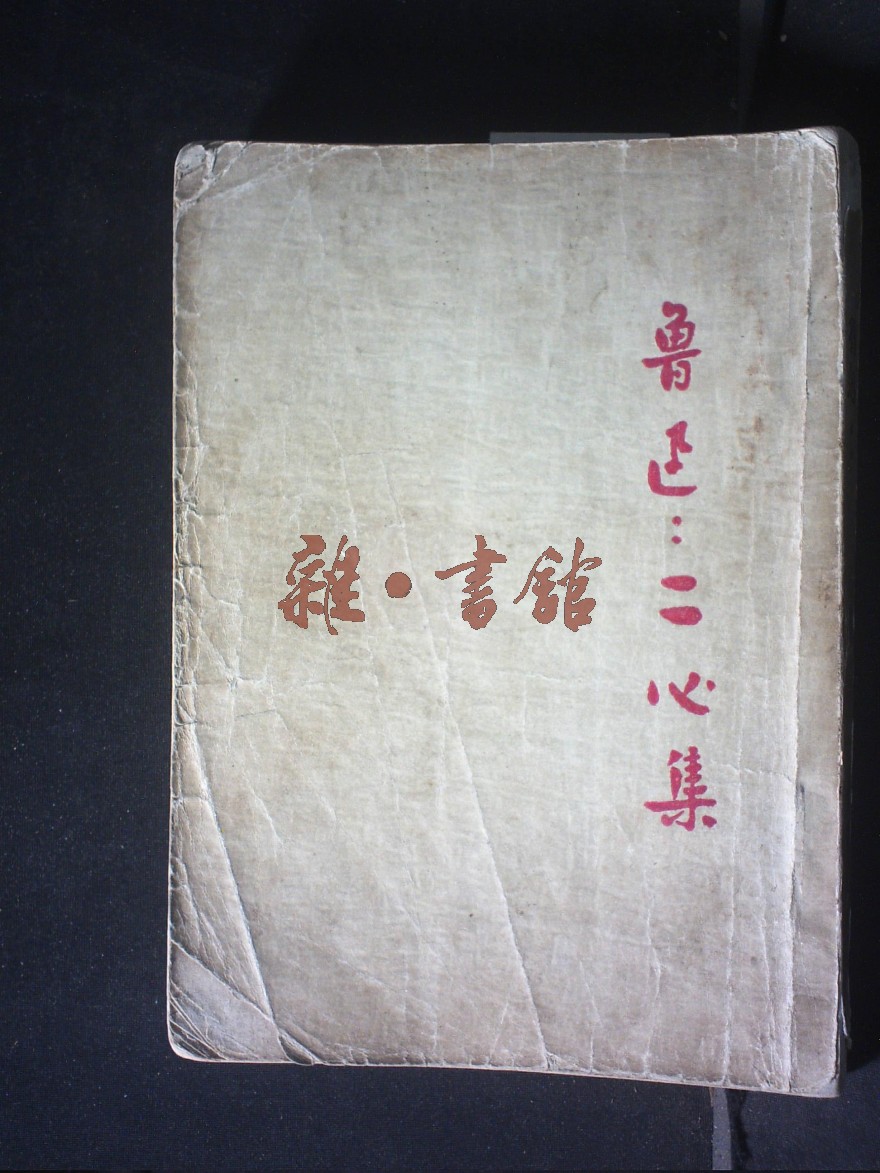 魯迅：二心集
雜·書舘